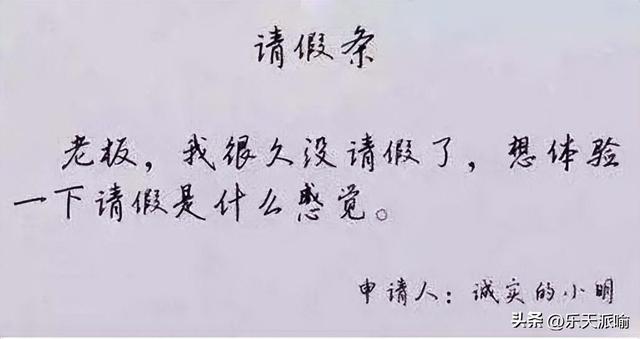 请假条
老板，我很久没请假了，想体验
一下请假是什么感觉。
申请人：诚实的小明
头条 @乐天派喻